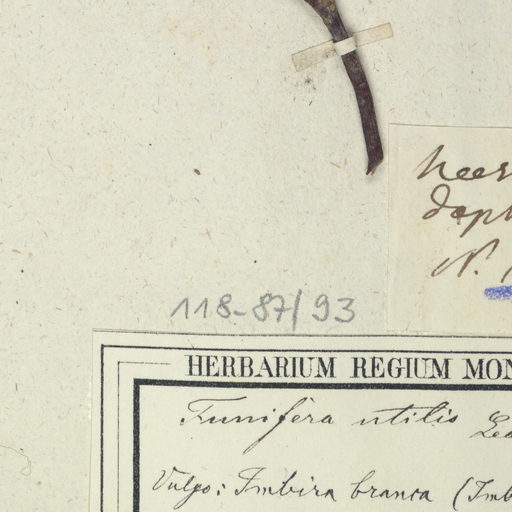 N.
118-87/93
HERBARIUM REGIUM MON
Funifera utilis Lea
Vulgo: Imbira branca (Imb